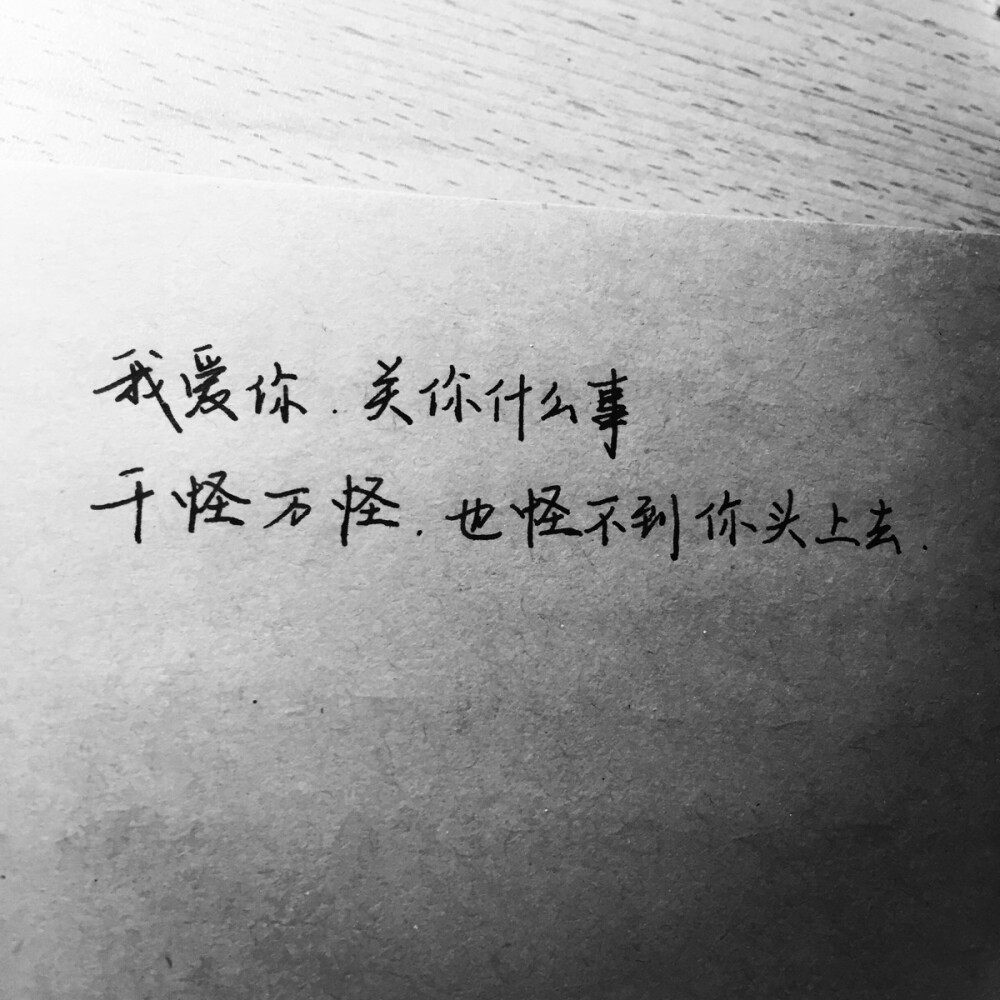 我爱你.关你什么事
千怪万怪.也怪不到你头上去.